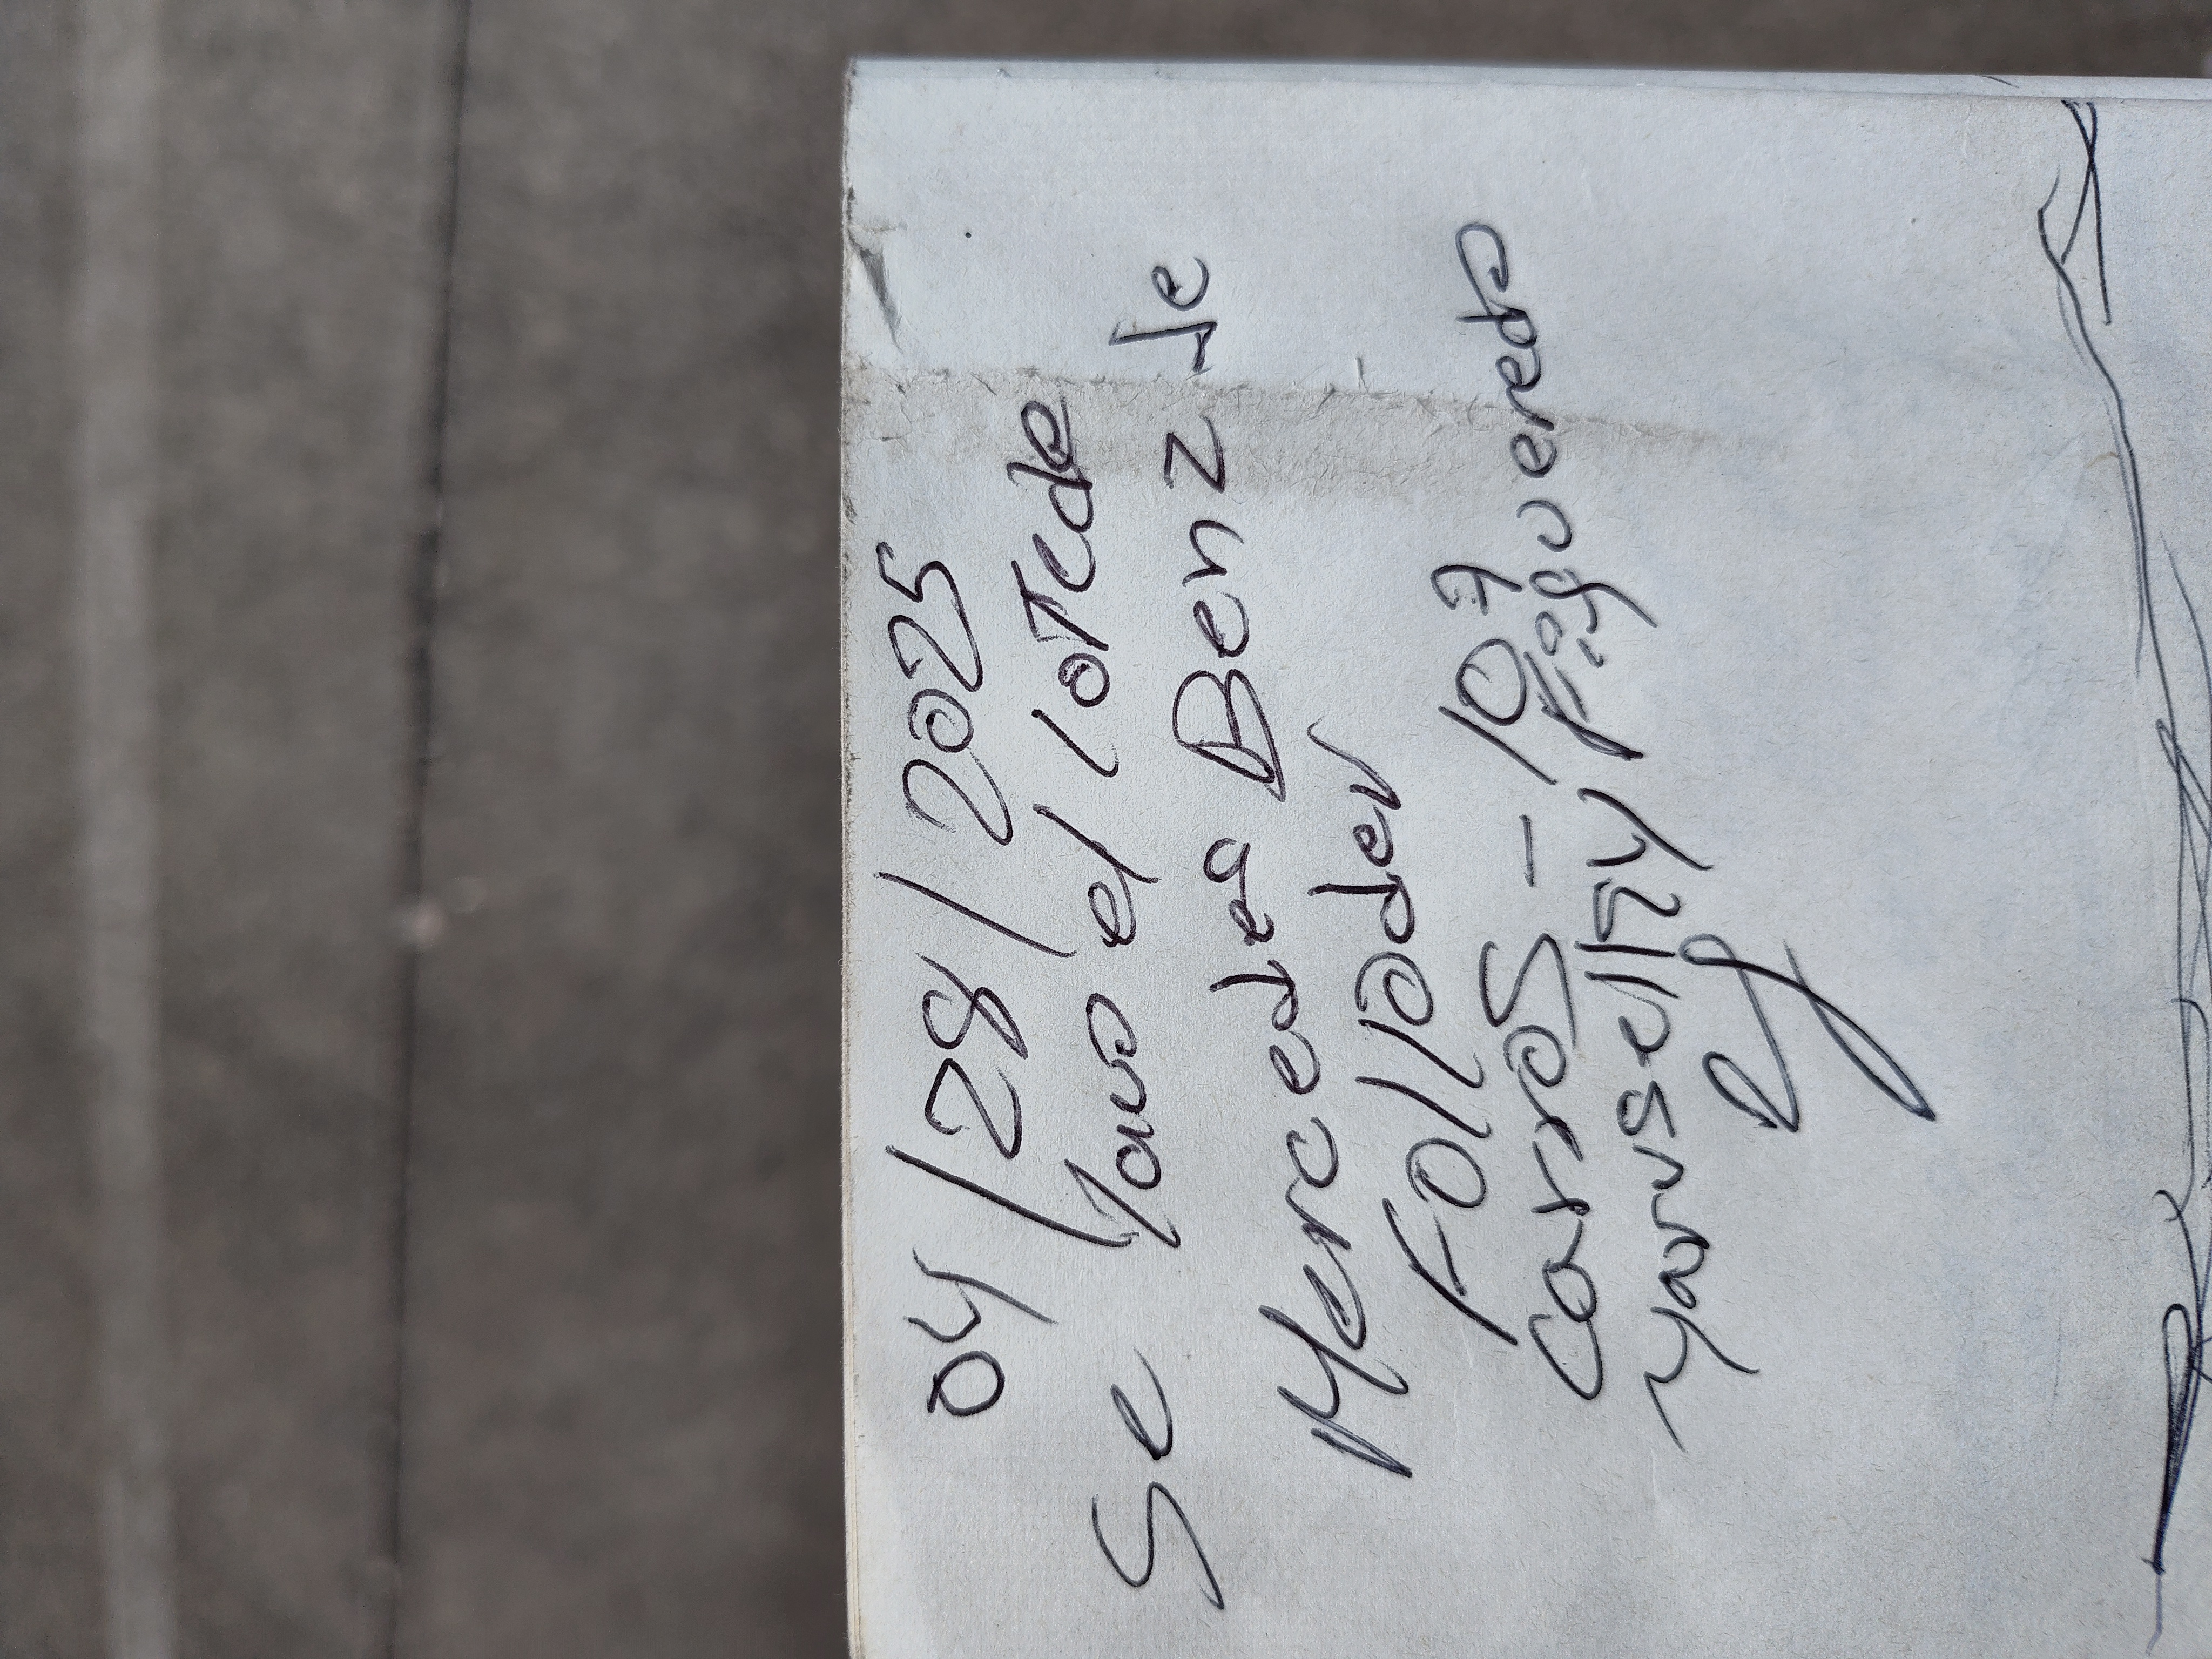 04/28/2025
Se lavo el lote de
Mercedes Benz de
Follader
Carros - 109
Yaruselky Figueredo